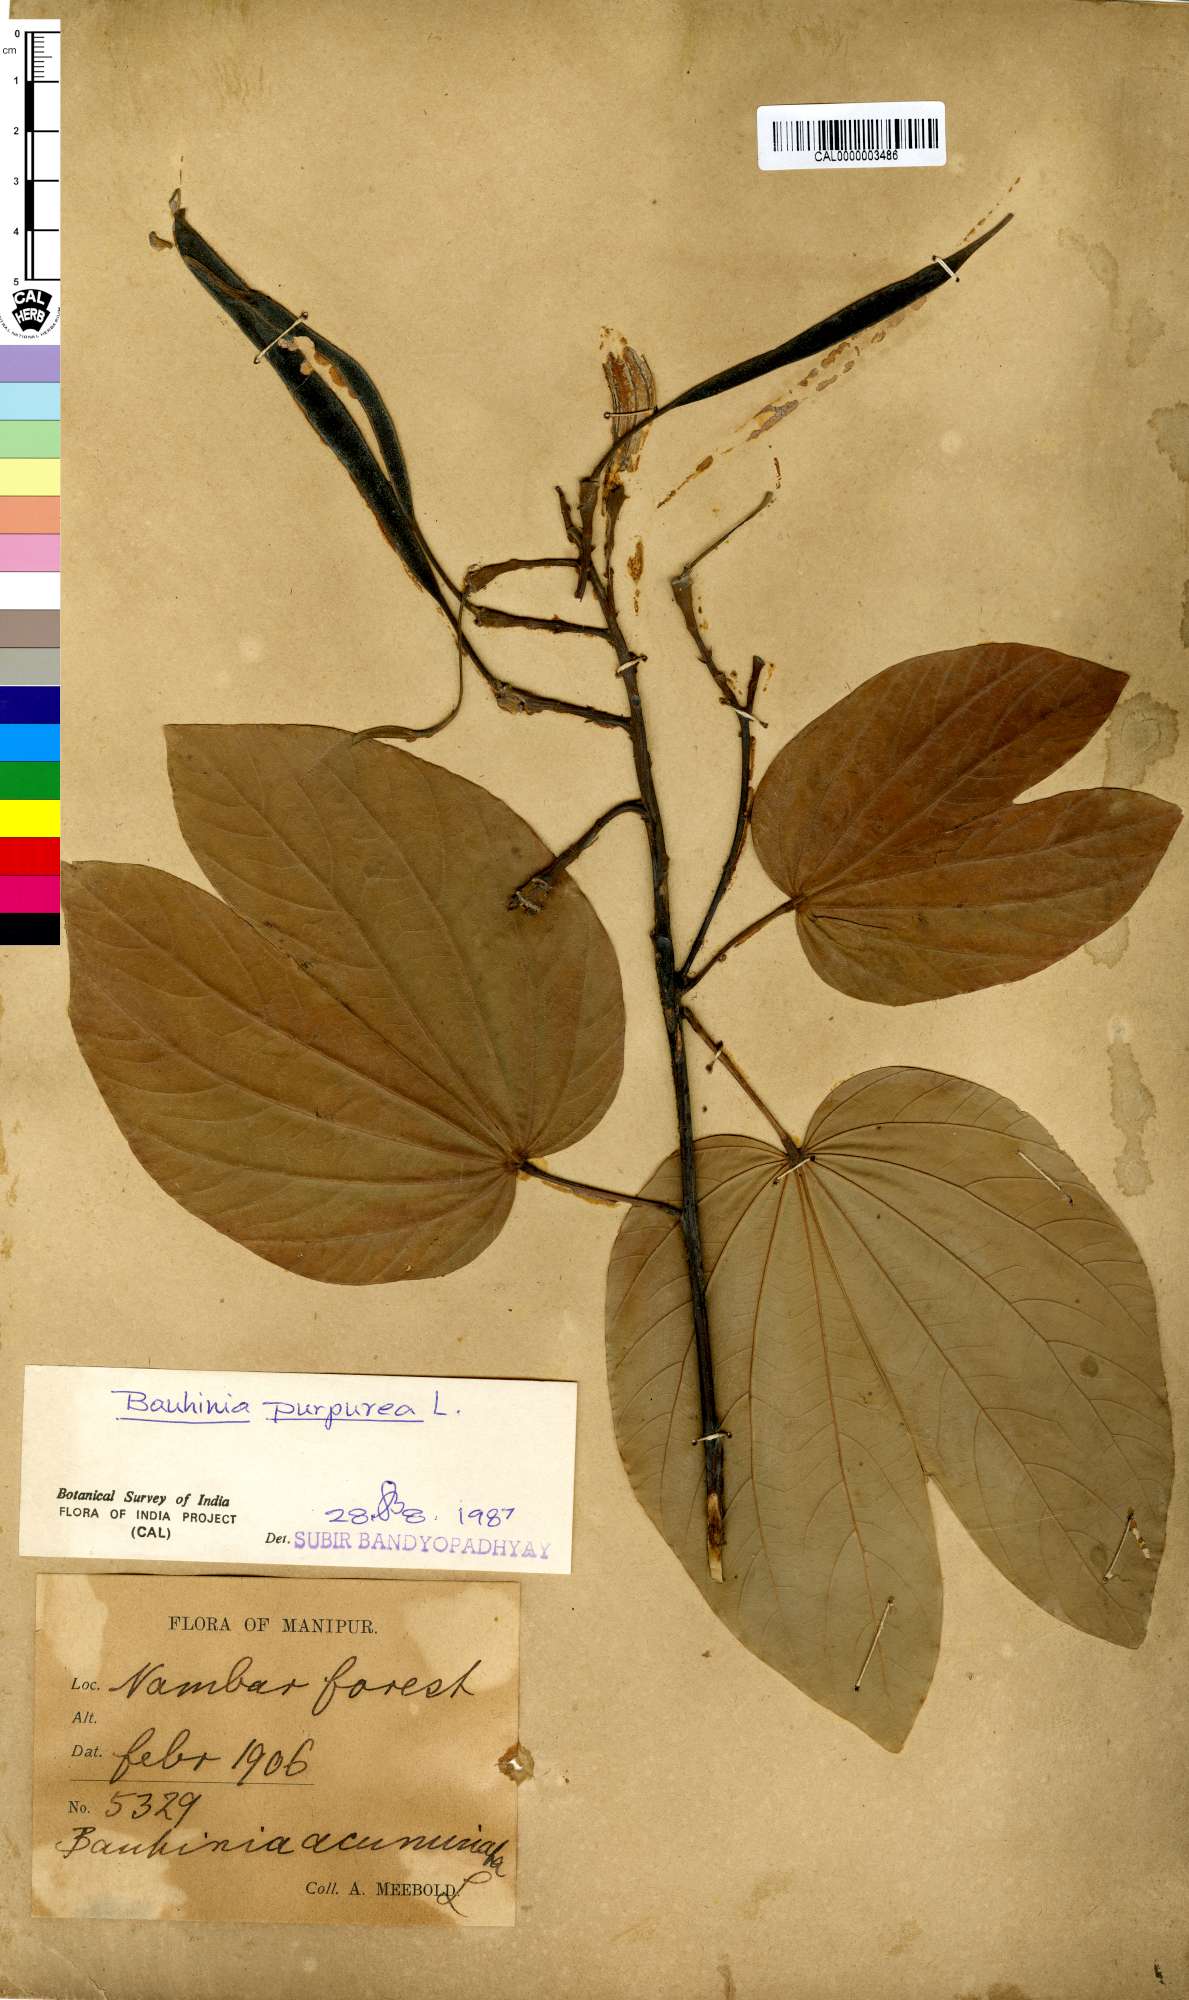 0
cm
1
2
3
4
5
CAL
HERB
CAL0000003486
Bauhinia purpurea L.
Botanical Survey of India
FLORA OF INDIA PROJECT
(CAL)
28. 8. 1987
Det. SUBIR BANDYOPADHYAY
FLORA OF MANIPUR.
Loc. Nambar forest
Alt.
Dat. febr 1906
No. 5329
Bauhinia acuminata
L
Coll. A. MEEBOLD.